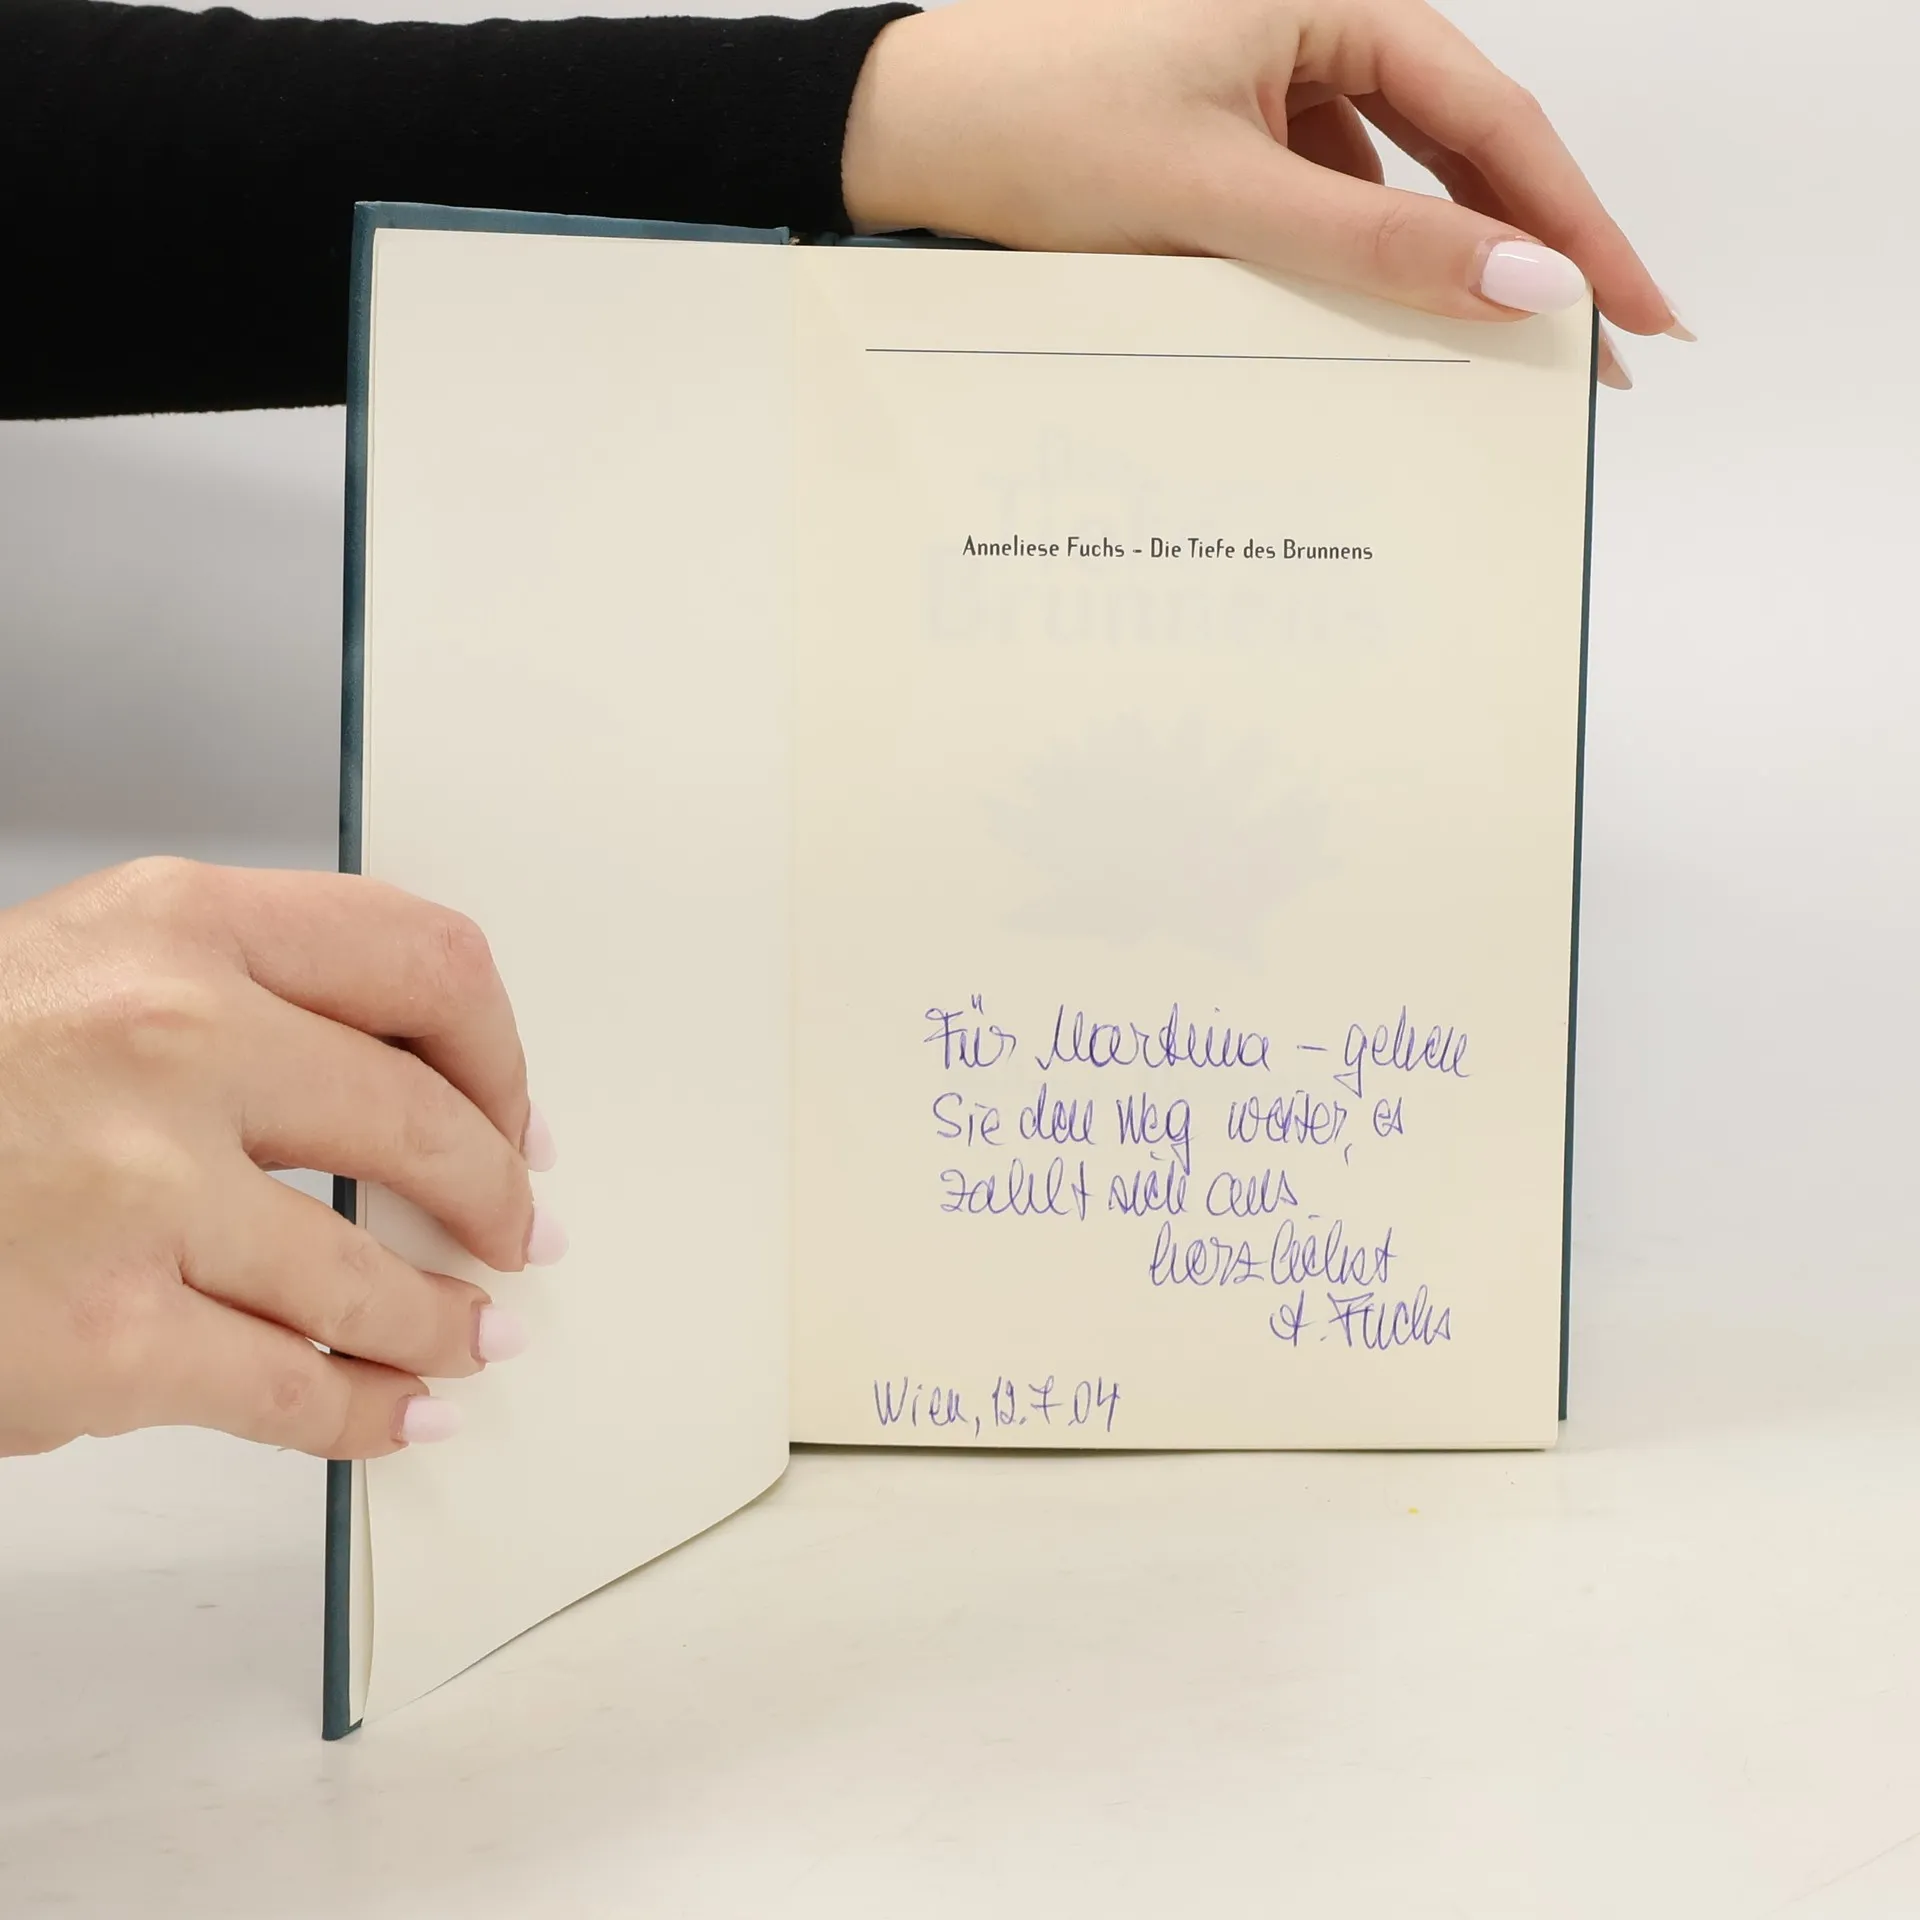 Anneliese Fuchs - Die Tiefe des Brunnens
Für Martina – gehen
Sie den Weg weiter, es
zahlt sich aus
herzlichst
A. Fuchs
Wien, 12.7.04